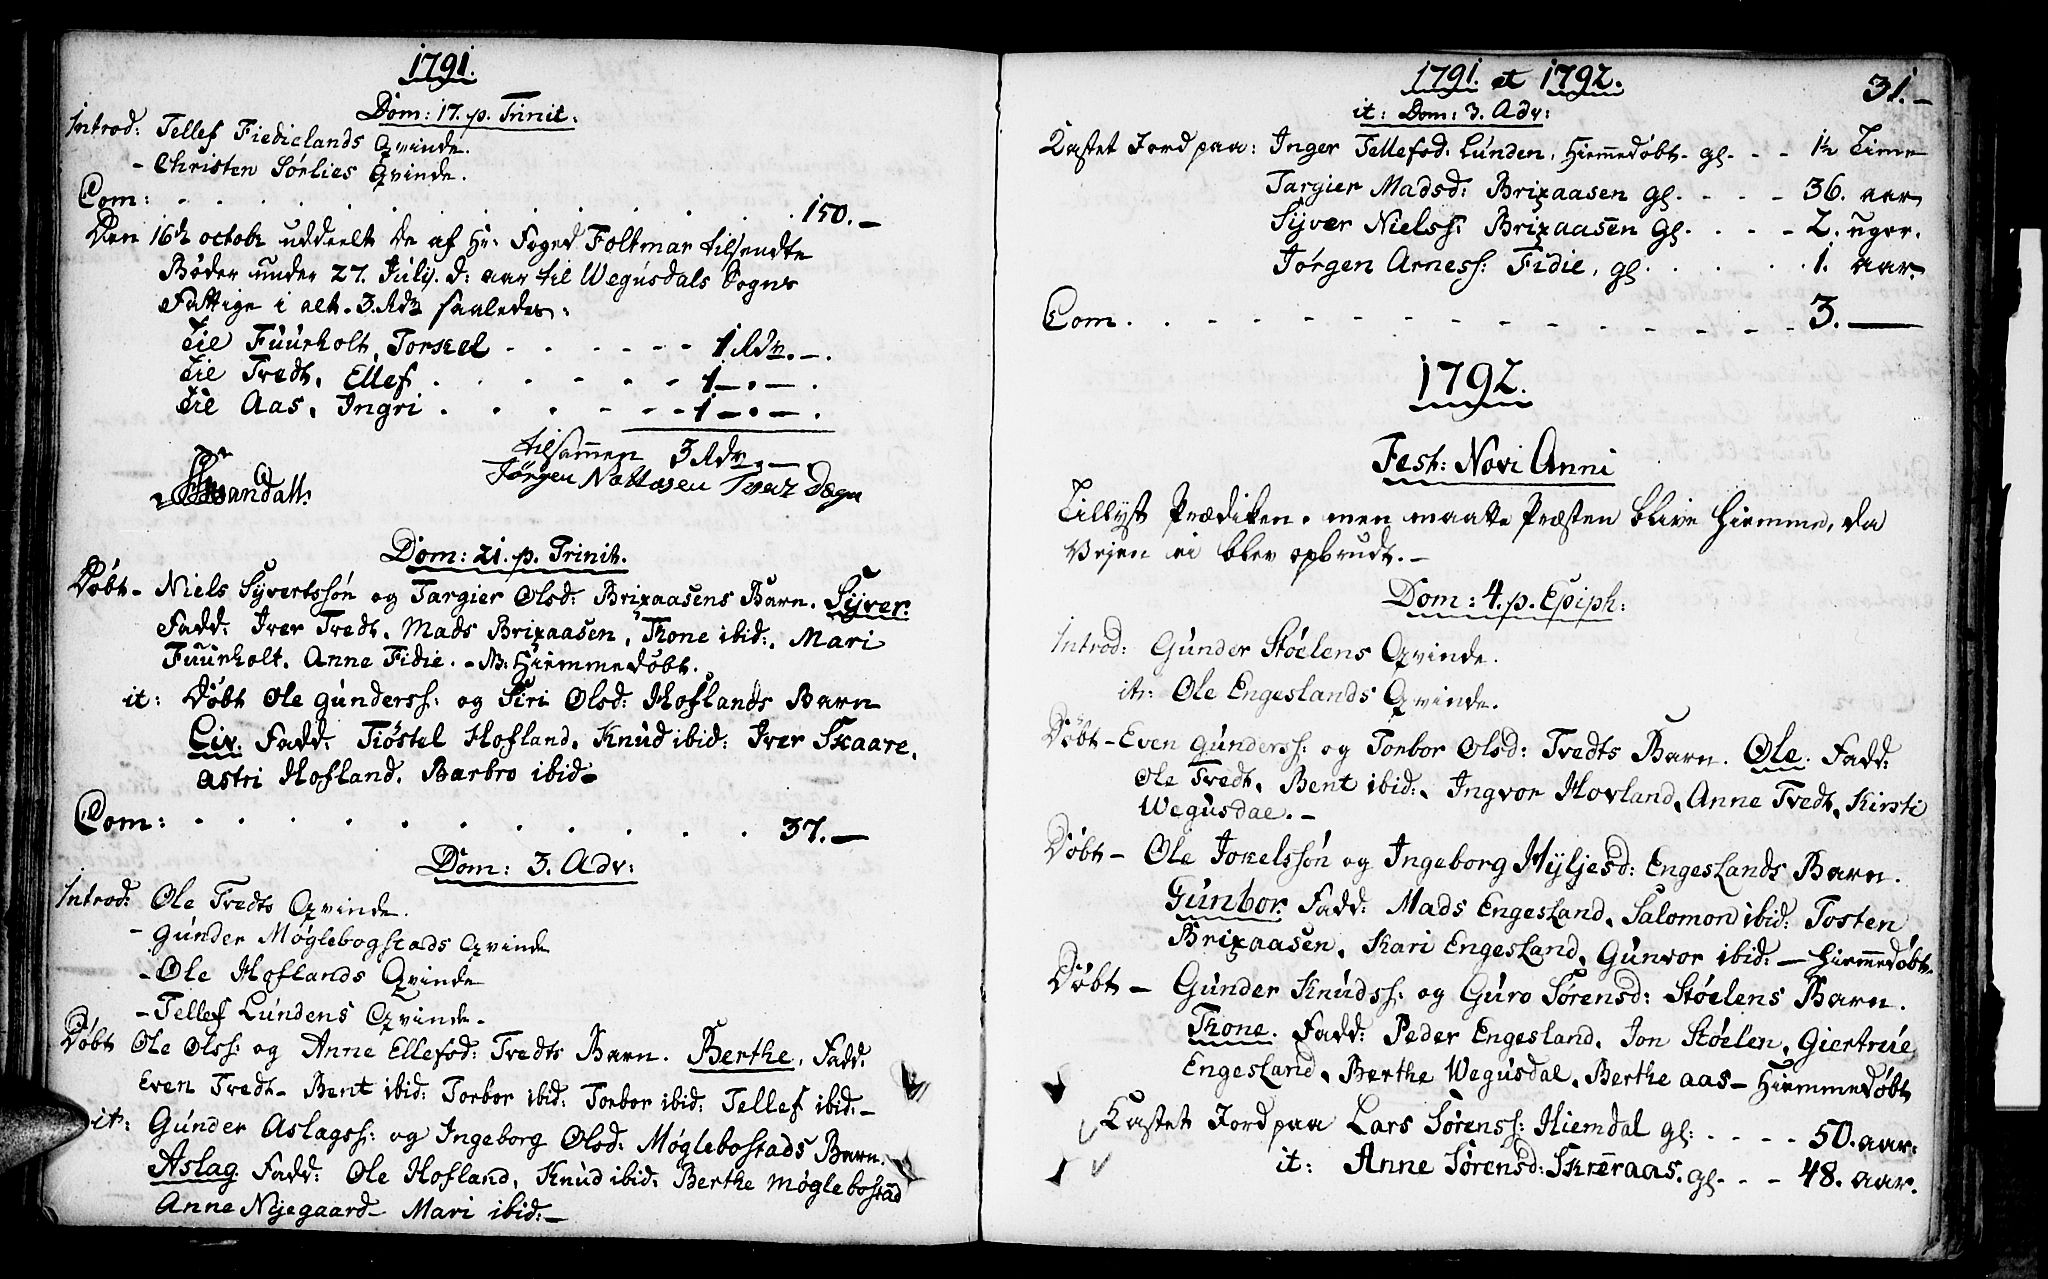 1791.
Dom: 17. p. Trinit:
Introd: Tellef Fiedielands Qvinde.
- Christen Sørlies Qvinde.
Com: . . . . . . . . . . 150. -
Den 16de octobr uddeelt de af Hr. Foged Foltmar tilsendte
Bøder under 27. Julij. d: aar til Wegusdals Sogns
Fattige i alt. 3. Rdr saaledes:
Til Fuurholt, Torkel - - - - - - 1 Rdr. -.
Til Tvedt, Ellef . . . . . . 1 - . - .
Til Aas, Ingri . . . . . - - 1 - . - .
tilsammen 3 Rdr. - .
Jørgen Nattesen Tvez Degn
Dom: 21. p. Trinit.
Døbt - Niels Syvertssøn og Targier Olsd: Brixaasens Barn. Syver.
Fadd: Iver Tvedt, Mads Brixaasen, Thone ibid:, Mari
Fuurholt, Anne Fidie. - NB: Hiemmedøbt.
it: Døbt Ole Gunderss: og Siri Olsd: Hoflands Barn
Liv. Fadd: Tiøstel Hofland, Knud ibid: Iver Skaare,
Astri Hofland, Barbro ibid -
Com: . . . . . . . . . . 37. -
Dom: 3. Adv:
Introd: Ole Tvedts Qvinde.
- Gunder Møglebogstads Qvinde
- Ole Hoflands Qvinde
- Tellef Lundens Qvinde -
Døbt Ole Olss: og Anne Ellefsd: Tvedts Barn. Berthe, Fadd:
Even Tvedt - Bent ibid: Torbor ibid: Torbor ibid: Tellef ibid: -
it: Gunder Aslagss: og Ingeborg Olsd: Møglebostads Barn.
Aslag Fadd: Ole Hofland, Knud ibid, Berthe Møglebostad
Anne Nyegaard - Mari ibid: -
1791. et 1792. 31. -
it: Dom: 3. Adv:
Kastet Jord paa: Inger Tellefsd: Lunden, Hiemmedøbt - gl. - - 1½ Time
Targier Madsd: Brixaasen gl. - - - - 36. aar
Syver Nielss: Brixaasen gl. - - - - 2. uger.
Jørgen Arness: Fidie, gl. . . . . . . 1. aar.
Com . . - - - - - - - - - - 3. -
1792.
Fest: Novi Anni
Tillyst Prædiken. men maatte Præsten blive hiemme, da
Vejen ei blev opbrudt. -
Dom: 4. p. Epiph:
Introd: Gunder Støelens Qvinde.
it: Ole Engeslands Qvinde.
Døbt - Even Gunderss: og Torbor Olsd: Tvedts Barn. Ole. Fadd:
Ole Tvedt, Bent ibid:, Ingvor Hovland, Anne Tvedt, Kirsti
Wegusdal. -
Døbt - Ole Jokelssøn og Ingeborg Hyljesd: Engeslands Barn.
Gunbor. Fadd: Mads Engesland, Salomon ibid: Tosten
Brixaasen, Kari Engesland, Gunvor ibid: - Hiemmedøbt.
Døbt - Gunder Knudss: og Guro Sørensd: Støelens Barn.
Thone. Fadd: Peder Engesland, Jon Støelen, Giertrue
Engesland, Berthe Wegusdal, Berthe Aas - Hiemmedøbt
Kastet Jord paa Lars Sørenss: Hiemdal gl: . - - - - 50. aar.
it: Anne Sørensd: Skreraas. gl. - - - 48. aar.